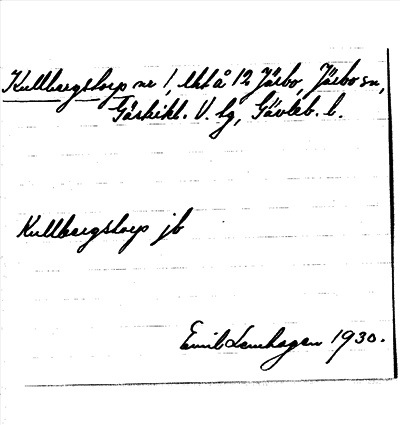 Kullbergstorp nr 1, lht å 12 Järbo, Järbo sn,
Gästrikl. V. tg, Gävleb. l.
Kullbergstorp jb
Emil Lenhagen 1930.